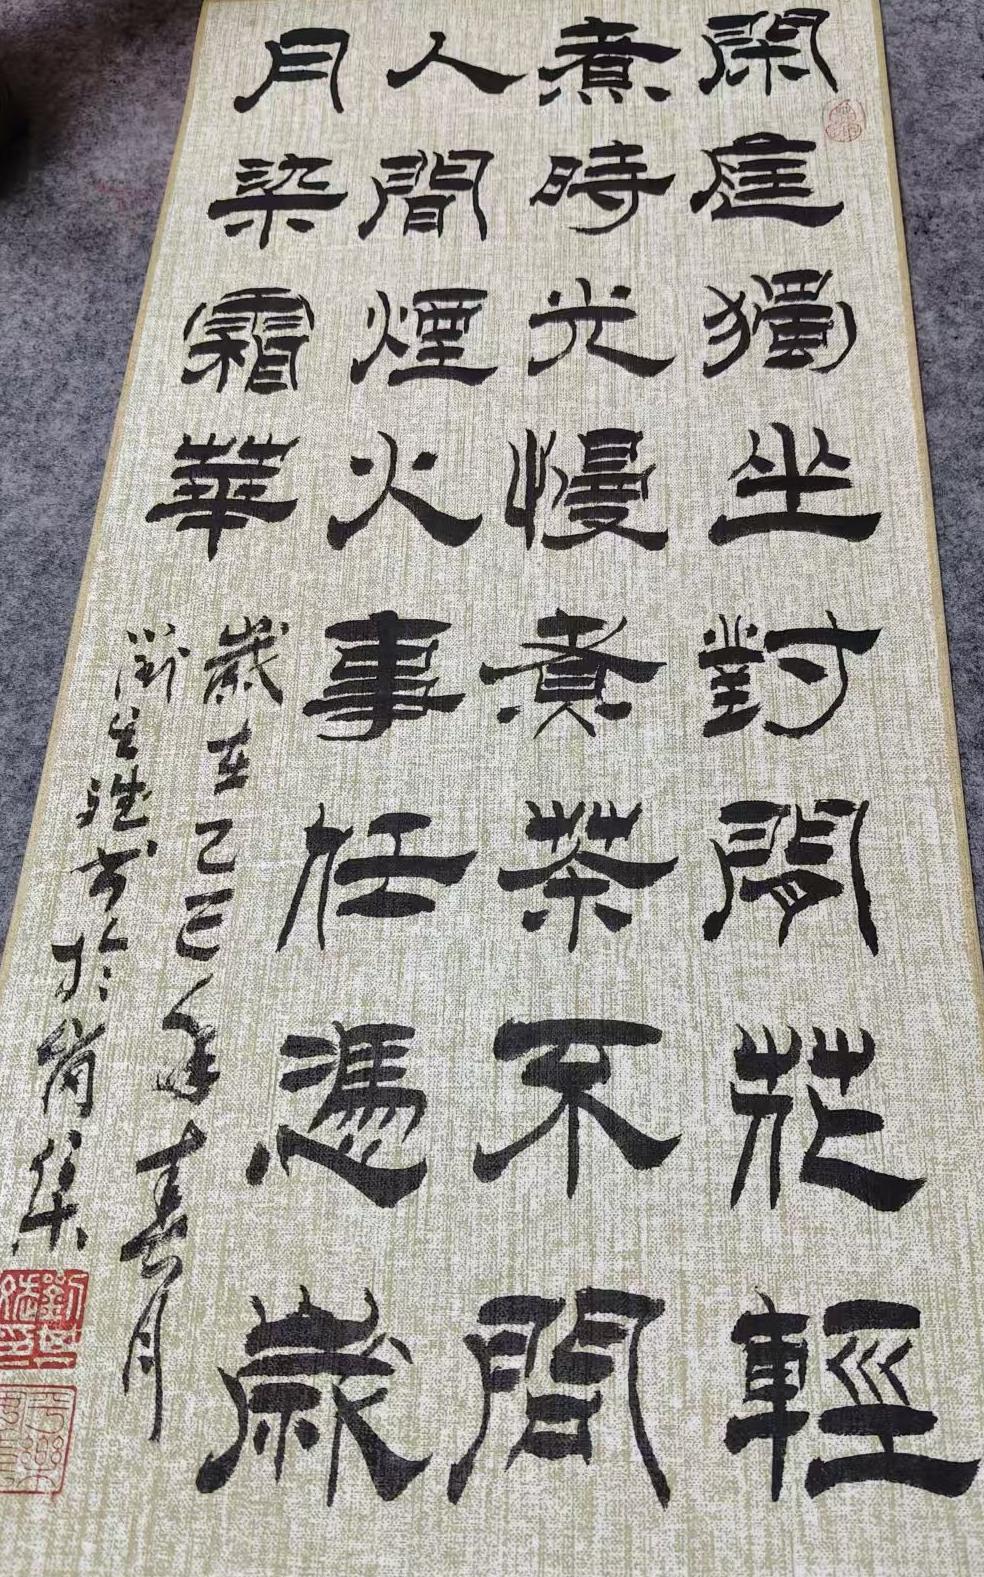 閑庭獨坐對閒花輕
煮時光慢煮茶不問
人間煙火事任憑歲
月染霜華
歲在乙巳年春月
劉生書於尚集